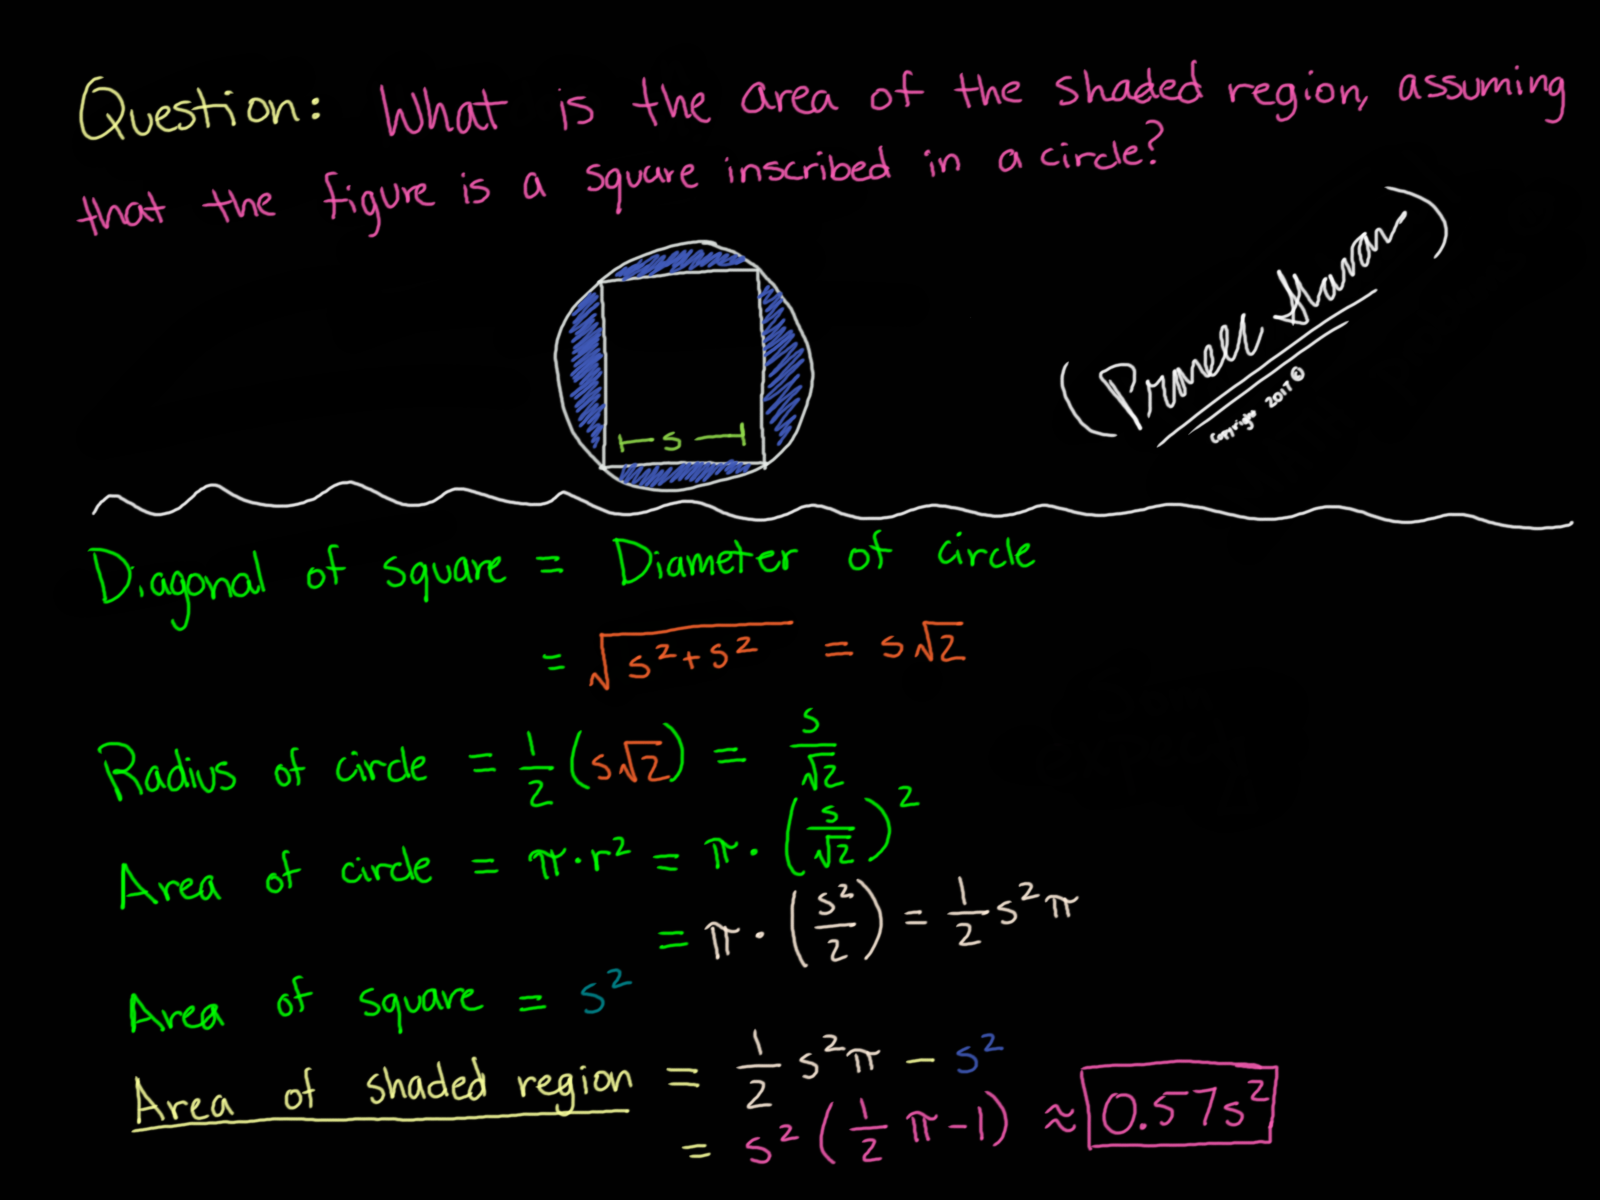 Question: What is the area of the shaded region, assuming
that the figure is a square inscribed in a circle?
s
Copyright 2017 ©
Diagonal of square = Diameter of circle
= √(s²+s²) = s√2
Radius of circle = 1/2 (s√2) = s/√2
Area of circle = π·r² = π·(s/√2)²
= π·(s²/2) = 1/2 s²π
Area of square = s²
Area of shaded region = 1/2 s²π - s²
= s² (1/2 π-1) ≈ 0.57s²